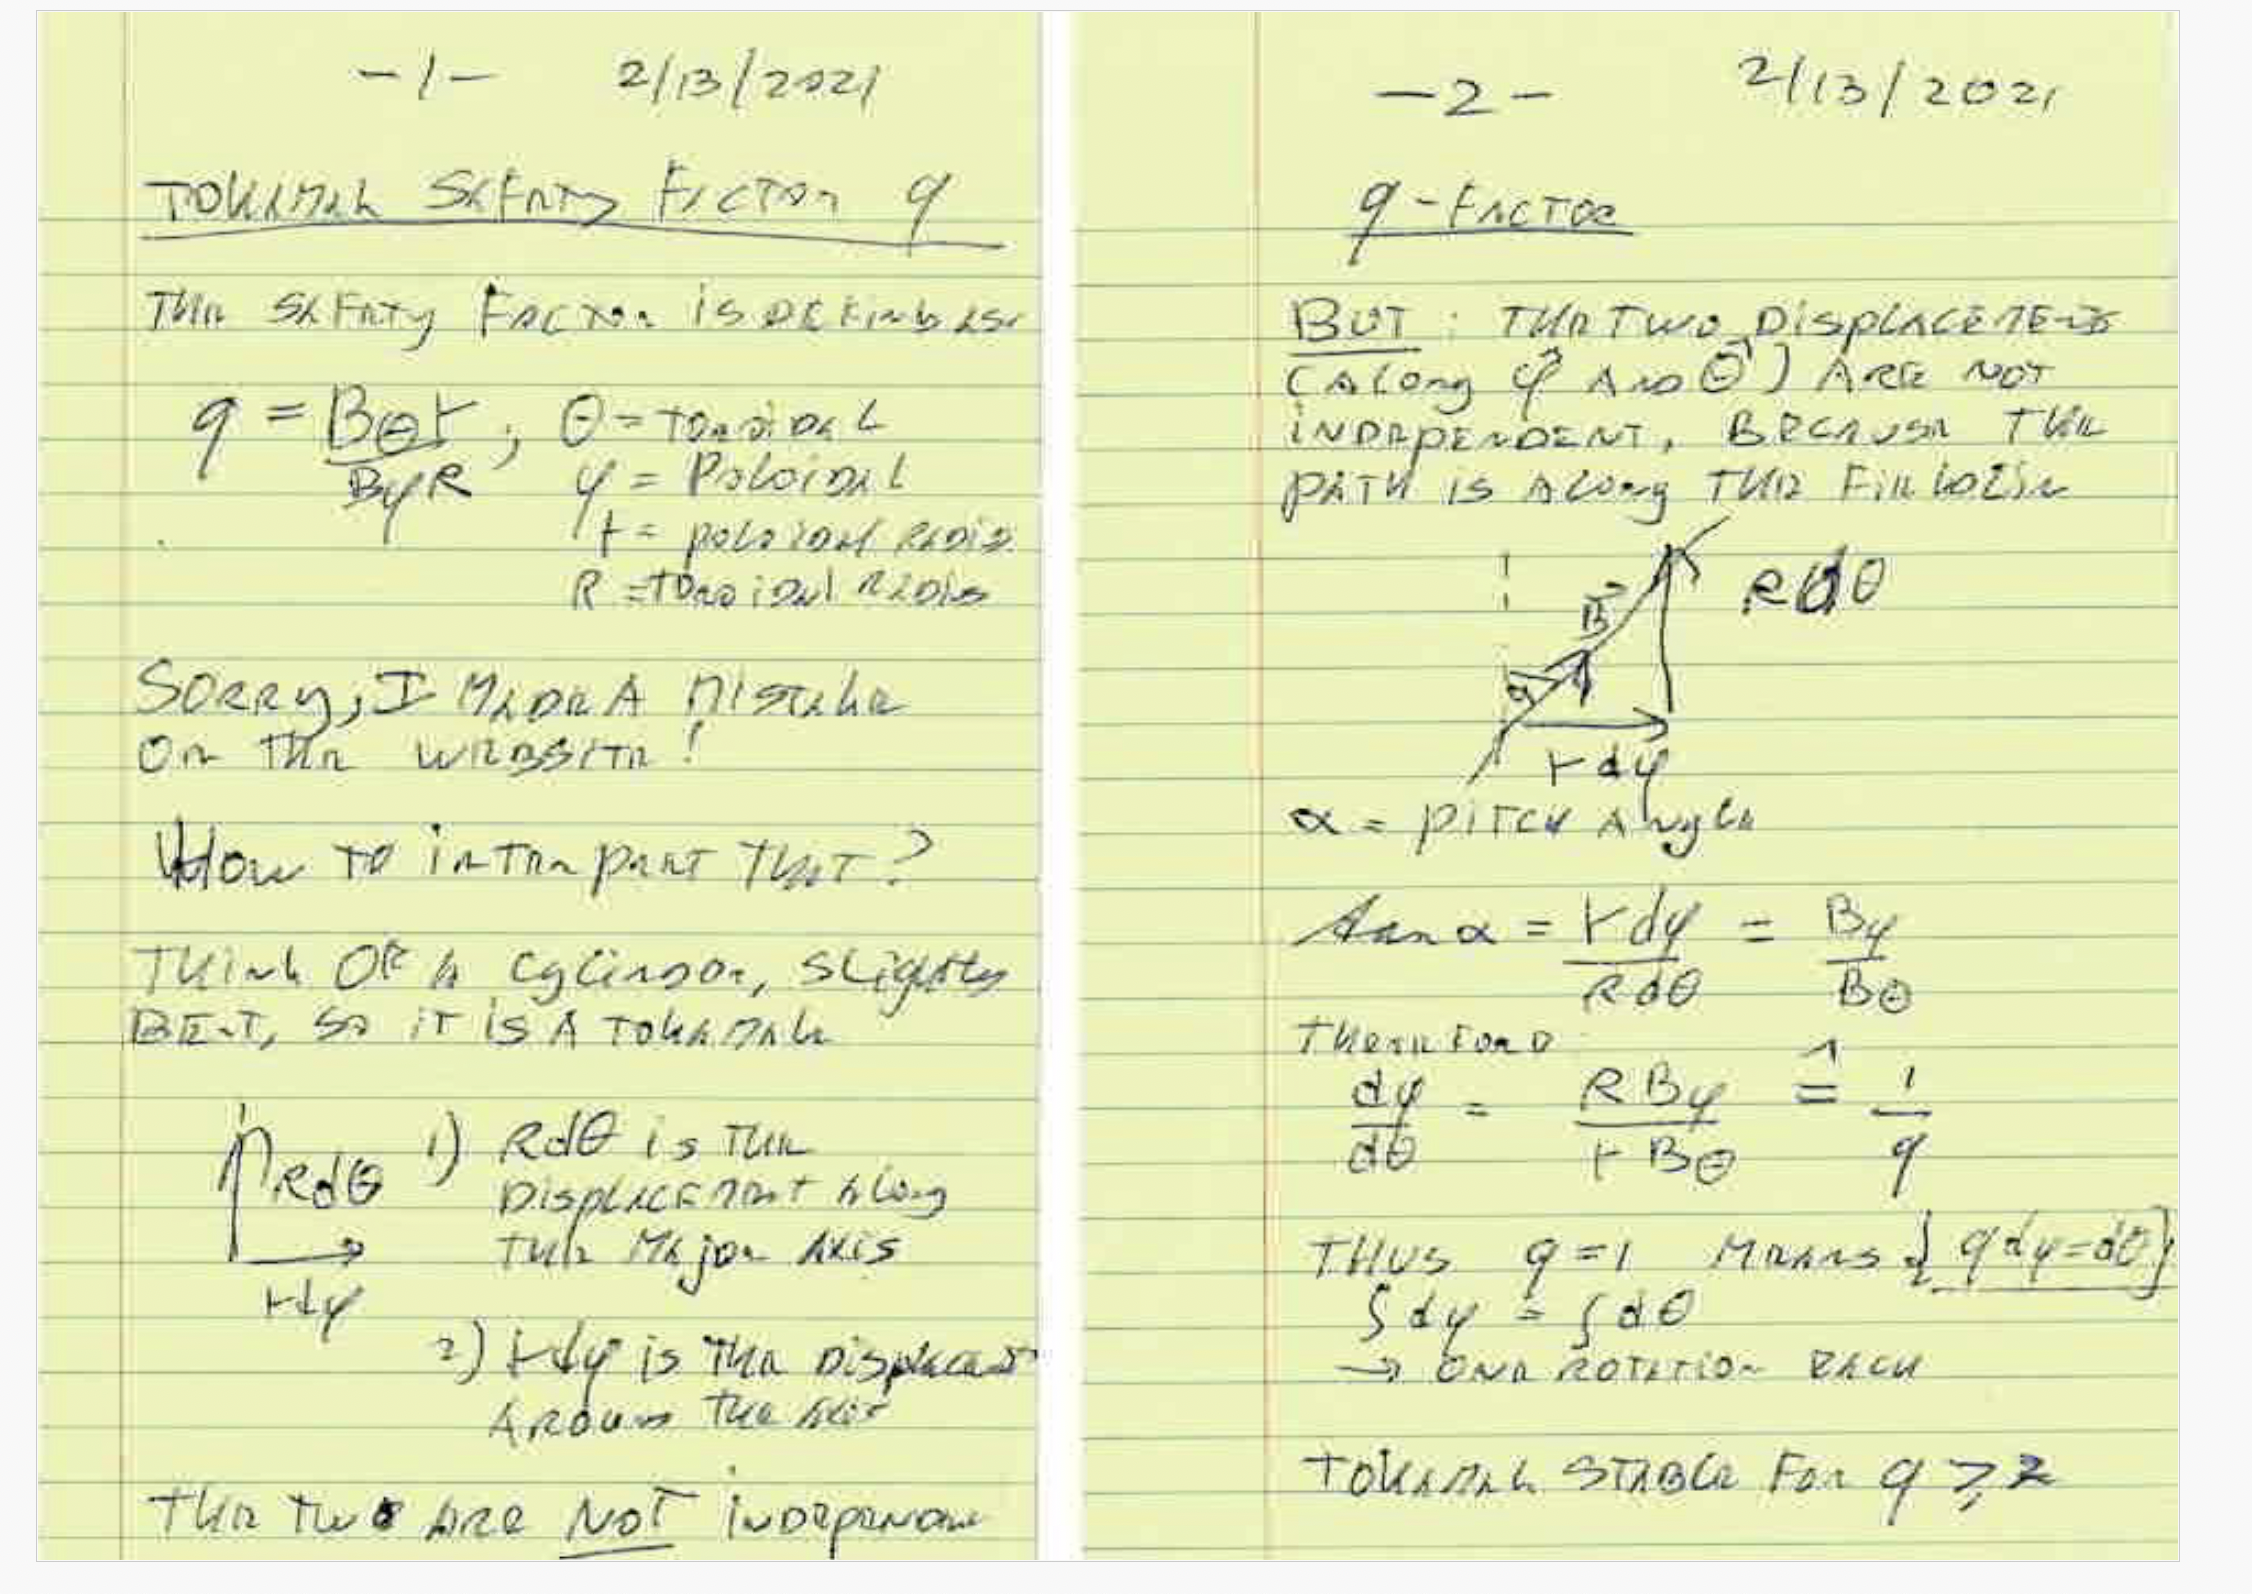 -1- 2/13/2021
TOKAMAK SAFETY FACTOR q
THE SAFETY FACTOR IS DEFINED AS:
q = Bθr / BφR ; θ = TOROIDAL
φ = POLOIDAL
r = POLOIDAL RADIUS
R = TOROIDAL RADIUS
SORRY, I MADE A MISTAKE
ON THE WEBSITE!
HOW TO INTERPRET THAT?
THINK OF A CYLINDER, SLIGHTLY
BENT, SO IT IS A TOKAMAK
Rdθ
rdφ
1) Rdθ IS THE
DISPLACEMENT ALONG
THE MAJOR AXIS
2) rdφ IS THE DISPLACEMENT
AROUND THE AXIS
THE TWO ARE NOT INDEPENDENT
-2- 2/13/2021
q-FACTOR
BUT: THE TWO DISPLACEMENTS
(ALONG φ⃗ AND θ⃗) ARE NOT
INDEPENDENT, BECAUSE THE
PATH IS ALONG THE FIELDLINE
B⃗ Rdθ
α
rdφ
α = PITCH ANGLE
tan α = rdφ / Rdθ = Bφ / Bθ
THEREFORE
dφ / dθ = R Bφ / r Bθ ≙ 1 / q
THUS q = 1 MEANS { q dφ = dθ }
∫dφ = ∫dθ
→ ONE ROTATION EACH
TOKAMAK STABLE FOR q ≥ 2